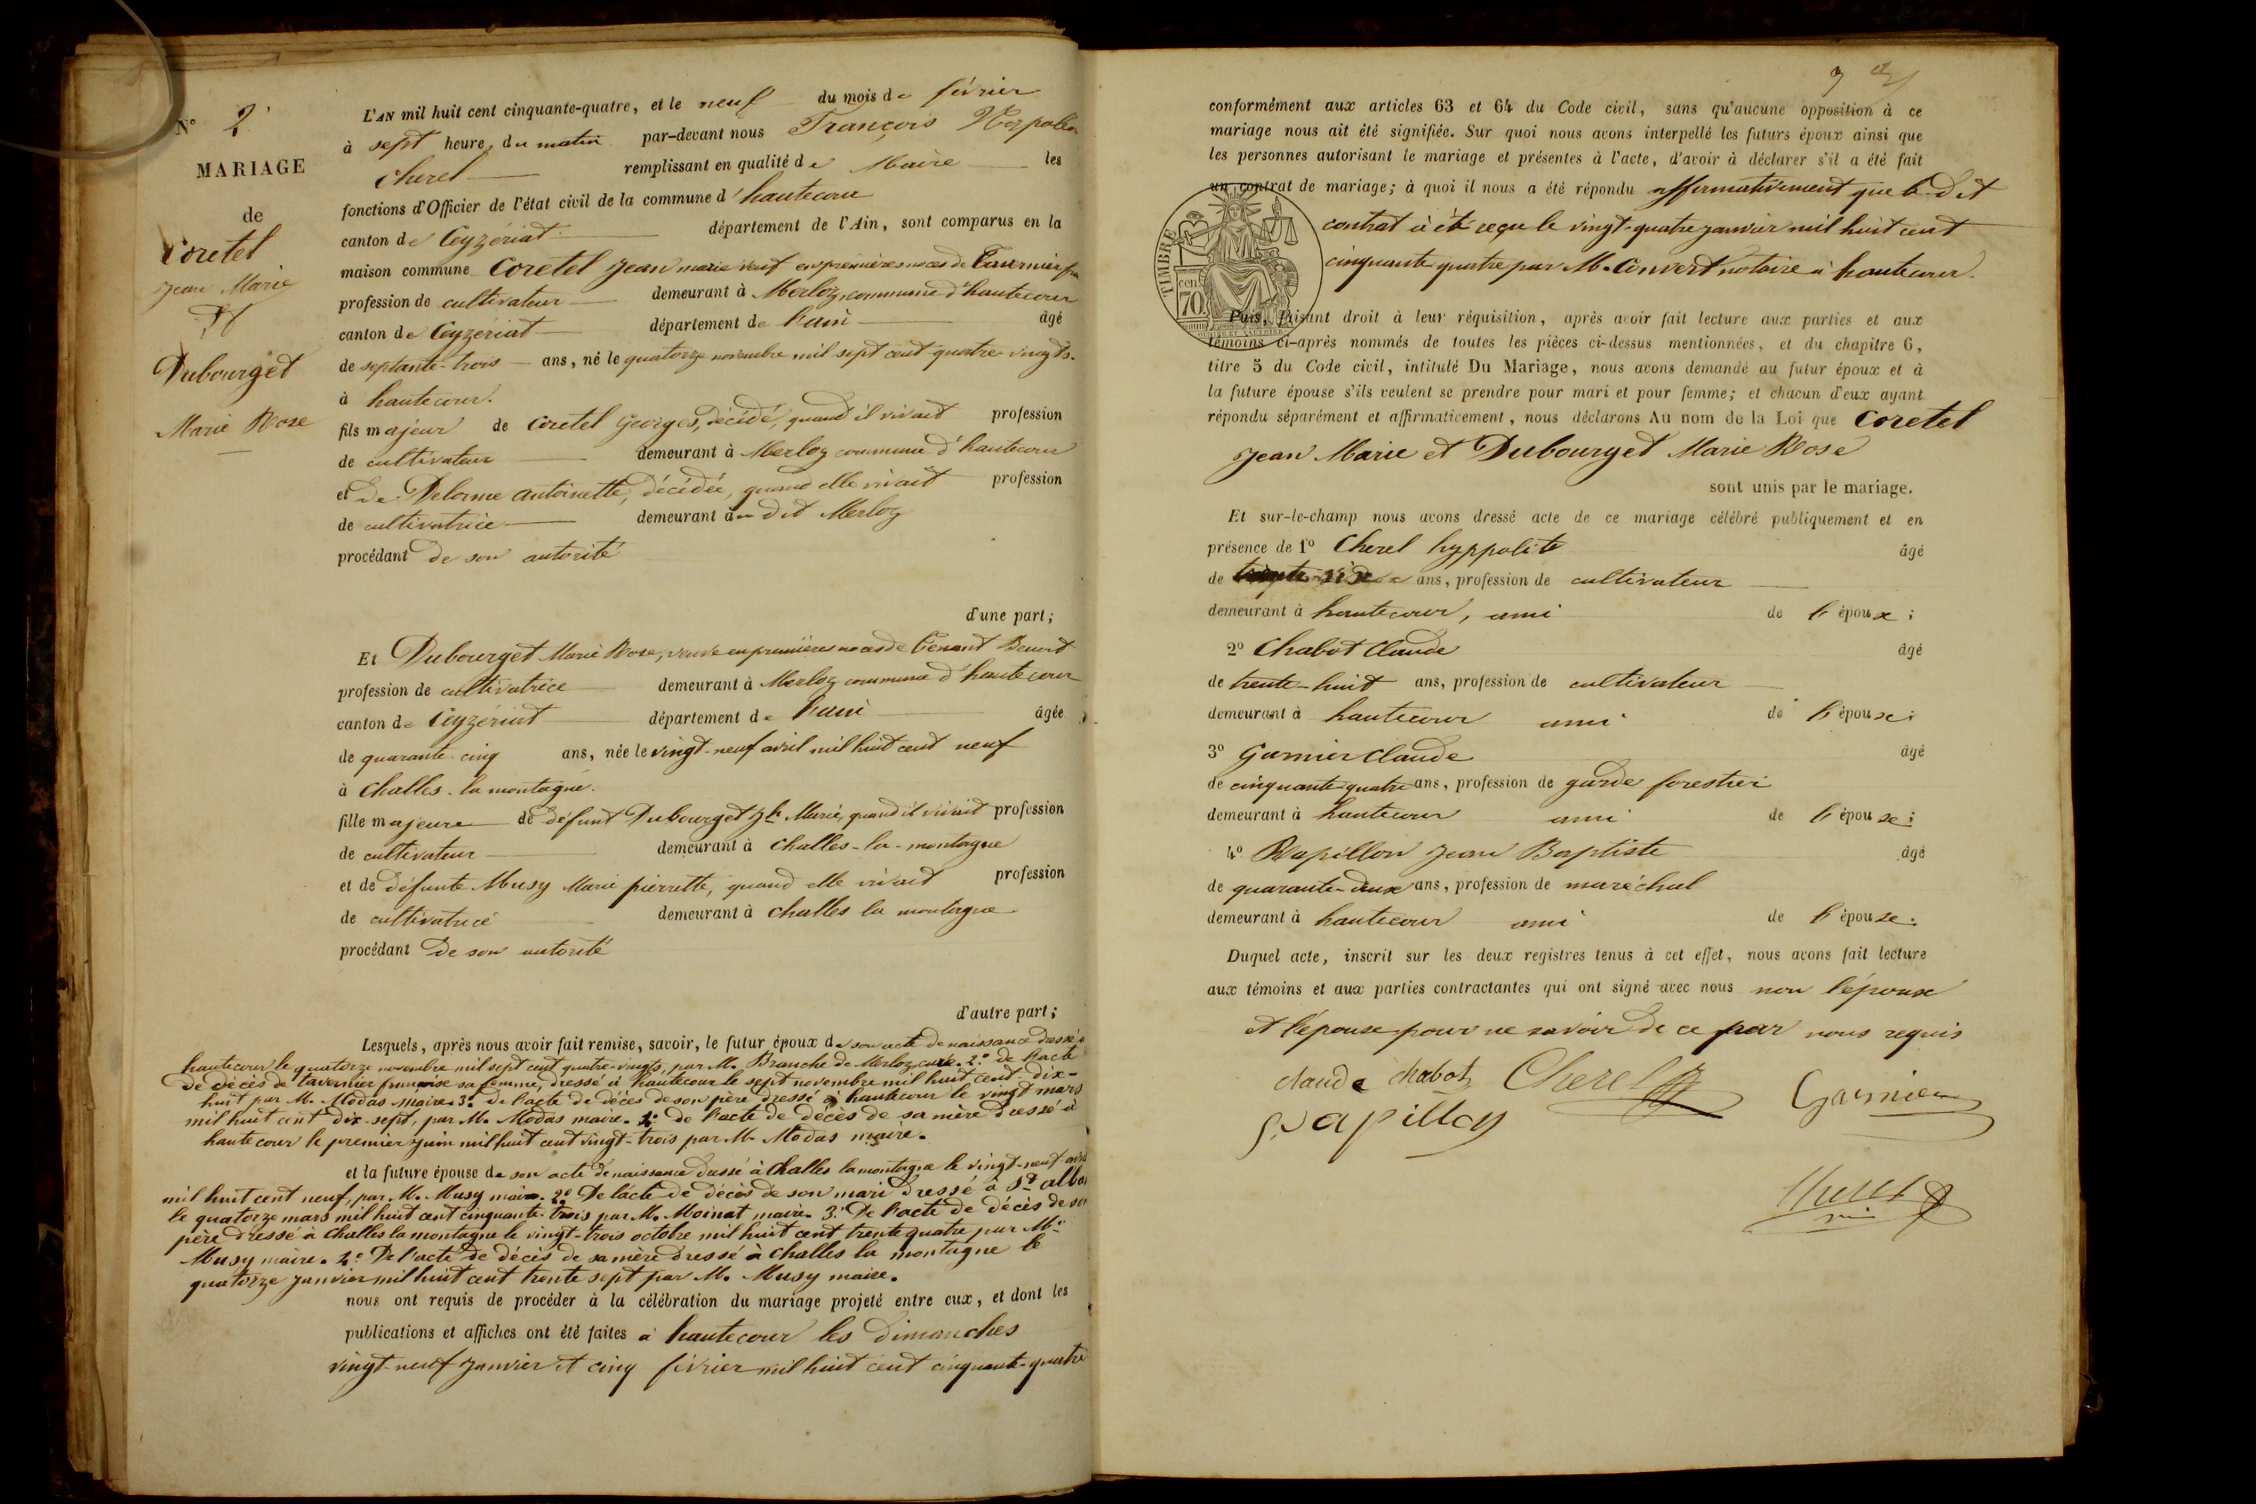 N° 2
MARIAGE
de
Coretel
Jean Marie
Et
Dubourget
Marie Rose
L'AN mil huit cent cinquante-quatre, et le neuf du mois de février
à sept heure, du matin par-devant nous François
Cherel remplissant en qualité de Maire les
fonctions d'Officier de l'état civil de la commune d'hautecour
canton de Ceyzériat département de l'Ain, sont comparus en la
maison commune Coretel Jean marie veuf en premières noces de
profession de cultivateur demeurant à Merloz, commune d'hautecour
canton de Ceyzériat département de l'ain âgé
de septante-trois ans, né le quatorze novembre mil sept cent quatre-vingts.
à hautecour.
fils majeur de Coretel Georges, décédé, quand il vivait profession
de cultivateur demeurant à Merloz commune d'hautecour
et de Delorme antoinette, décédée, quand elle vivait profession
de cultivatrice demeurant au dit Merloz
procédant de son autorité
d'une part;
Et Dubourget Marie Rose, veuve en premières noces de Tenant Benoit
profession de cultivatrice demeurant à Merloz commune d'hautecour
canton de Ceyzériat département de l'ain âgée
de quarante-cinq ans, née le vingt-neuf avril mil huit cent neuf
à Challes-la montagne.
fille majeure de défunt Dubourget Jh Marie, quand il vivait profession
de cultivateur demeurant à Challes-la-montagne
et de défunte Musy Marie pierrette, quand elle vivait profession
de cultivatrice demeurant à Challes la montagne
procédant de son autorité
d'autre part;
Lesquels, après nous avoir fait remise, savoir, le futur époux de son acte de naissance dressé à
hautecour le quatorze novembre mil sept cent quatre-vingts, par M. Branche de Merloz, curé. 2° de l'acte
de décès de tavernier françoise sa femme, dressé à hautecour le sept novembre mil huit cent dix-
huit par M. Modas maire. 3° de l'acte de décès de son père dressé à hautecour le vingt mars
mil huit cent dix-sept, par M. Modas maire. 4° de l'acte de décès de sa mère dressé à
hautecour le premier juin mil huit cent vingt-trois par M. Modas maire.
et la future épouse de son acte de naissance dressé à Challes la montagne le vingt-neuf avril
mil huit cent neuf, par M. Musy maire. 2° De l'acte de décès de son mari dressé à St alban
le quatorze mars mil huit cent cinquante-trois par M. Moinat maire. 3° De l'acte de décès de son
père dressé à Challes la montagne le vingt-trois octobre mil huit cent trente quatre par Mr
Musy maire. 4° De l'acte de décès de sa mère dressé à Challes la montagne le
quatorze janvier mil huit cent trente sept par M. Musy maire.
nous ont requis de procéder à la célébration du mariage projeté entre eux, et dont les
publications et affiches ont été faites à hautecour les dimanches
vingt-neuf janvier et cinq février mil huit cent cinquante-quatre
conformément aux articles 63 et 64 du Code civil, sans qu'aucune opposition à ce
mariage nous ait été signifiée. Sur quoi nous avons interpellé les futurs époux ainsi que
les personnes autorisant le mariage et présentes à l'acte, d'avoir à déclarer s'il a été fait
un contrat de mariage; à quoi il nous a été répondu affirmativement que le dit
contrat à été reçu le vingt-quatre janvier mil huit cent
cinquante quatre par M. Convert notaire à hautecour.
TIMBRE
70 cen
Puis, faisant droit à leur réquisition, après avoir fait lecture aux parties et aux
témoins ci-après nommés de toutes les pièces ci-dessus mentionnées, et du chapitre 6,
titre 5 du Code civil, intitulé Du Mariage, nous avons demandé au futur époux et à
la future épouse s'ils veulent se prendre pour mari et pour femme; et chacun d'eux ayant
répondu séparément et affirmativement, nous déclarons Au nom de la Loi que Coretel
Jean Marie et Dubourget Marie Rose
sont unis par le mariage.
Et sur-le-champ nous avons dressé acte de ce mariage célébré publiquement et en
présence de 1° Cherel hyppolite âgé
de ans, profession de cultivateur
demeurant à hautecour, ami de l'époux;
2° Chabot Claude âgé
de trente-huit ans, profession de cultivateur
demeurant à hautecour ami de l'époux;
3° Garnier Claude âgé
de cinquante-quatre ans, profession de garde forestier
demeurant à hautecour ami de l'épouse;
4° Papillon Jean Baptiste âgé
de quarante-deux ans, profession de maréchal
demeurant à hautecour ami de l'épouse.
Duquel acte, inscrit sur les deux registres tenus à cet effet, nous avons fait lecture
aux témoins et aux parties contractantes qui ont signé avec nous non l'époux
et l'épouse pour ne savoir de ce par nous requis
claude chabot Cherel Garnier
papillon
Cherel